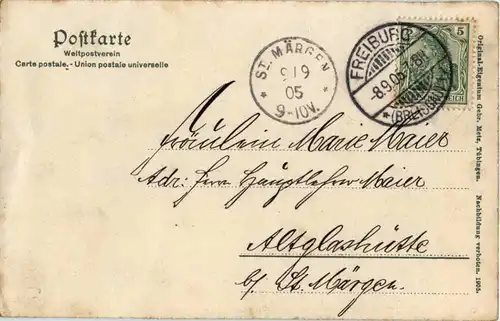 Postkarte
Weltpostverein
Carte postale. - Union postale universelle
ST. MÄRGEN
9/9
05
9-10V.
FREIBURG
8.9.05
(BREISGAU)
5
REICH
Fräulein Marie Maier
Adr: Herr Hauptlehrer Maier
Altglashütte
b/ St. Märgen.
Original-Eigentum Gebr. Metz, Tübingen. Nachbildung verboten. 1905.